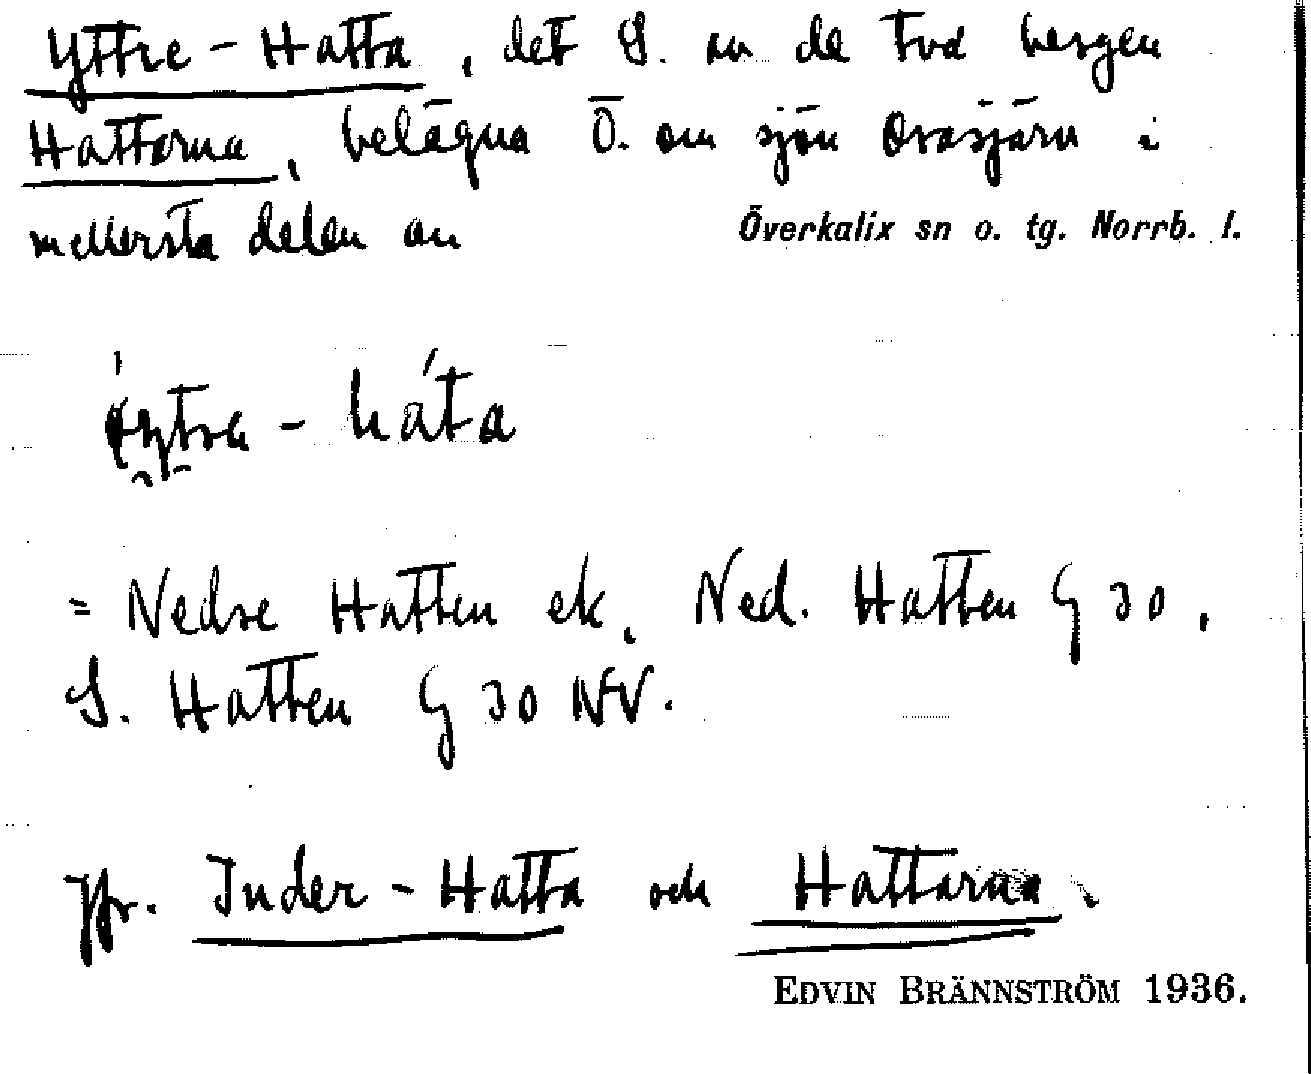 Yttre-Hatta, det S. av de två bergen
Hattarna, belägna Ö. om sjön Orasjärv i
mellersta delen av Överkalix sn o. tg. Norrb. l.
-háta
= Nedre Hatten ek. Ned. Hatten G 30,
S. Hatten G 30 NV.
Jfr. Inder-Hatta och Hattarna.
EDVIN BRÄNNSTRÖM 1936.